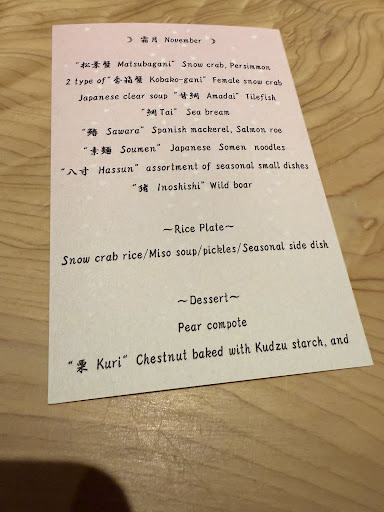 ☽ 霜月 November ☽
"松葉蟹 Matsubagani" Snow crab, Persimmon
2 type of "香箱蟹 Kobako-gani" Female snow crab
Japanese clear soup "甘鯛 Amadai" Tilefish
"鯛 Tai" Sea bream
"鰆 Sawara" Spanish mackerel, Salmon roe
"素麺 Soumen" Japanese Somen noodles
"八寸 Hassun" assortment of seasonal small dishes
"猪 Inoshishi" Wild boar
～Rice Plate～
Snow crab rice/Miso soup/pickles/Seasonal side dish
～Dessert～
Pear compote
"栗 Kuri" Chestnut baked with Kudzu starch, and